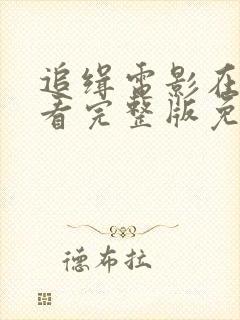 追缉电影在
看完整版免
德布拉